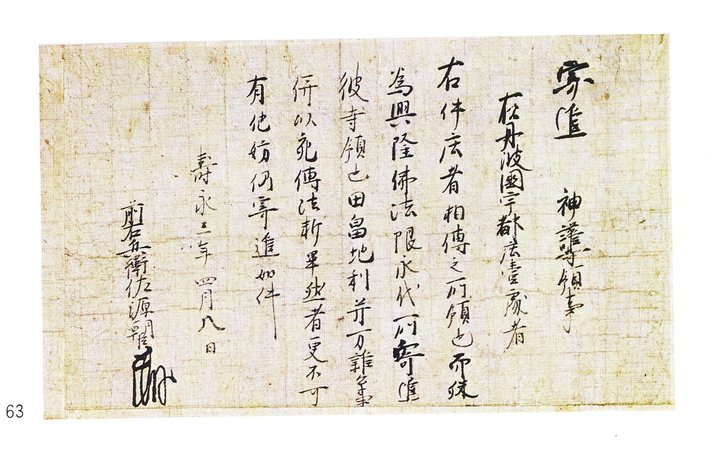 寄進　神護寺領事
在丹波國宇都庄壹處者
右件庄者相傳之所領也而殊
為興隆佛法限永代所寄進
彼寺領也田畠地利并万雜事
併以宛傳法料畢然者更不可
有他妨仍寄進如件
壽永三年四月八日
前右兵衛佐源朝臣
63